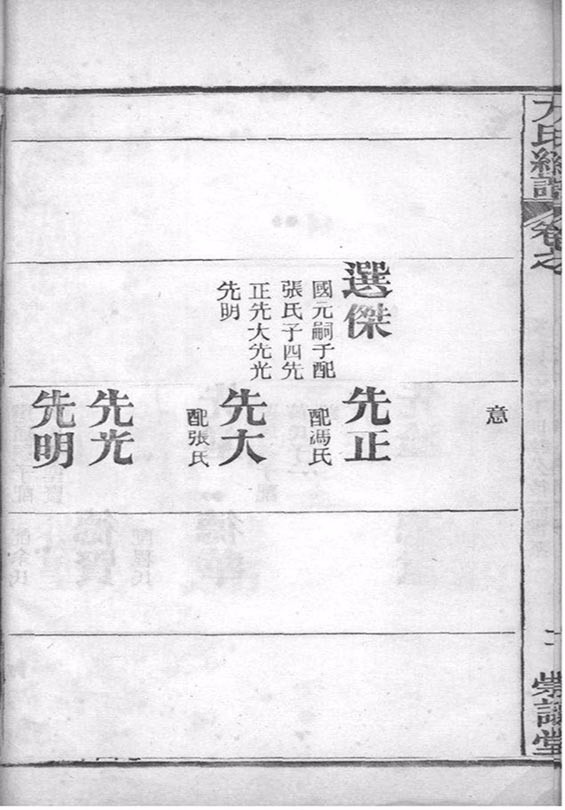 方氏總譜 卷之
二 崇讓堂
意
選傑
國元嗣子配
張氏子四先
正先大先光
先明
先正
配馮氏
先大
配張氏
先光
先明